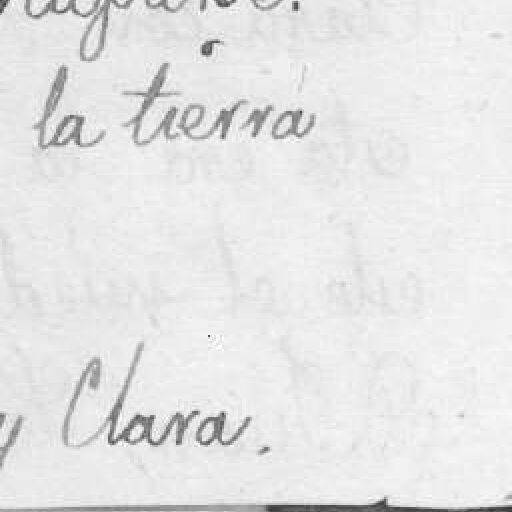 la tierra
y Clara.